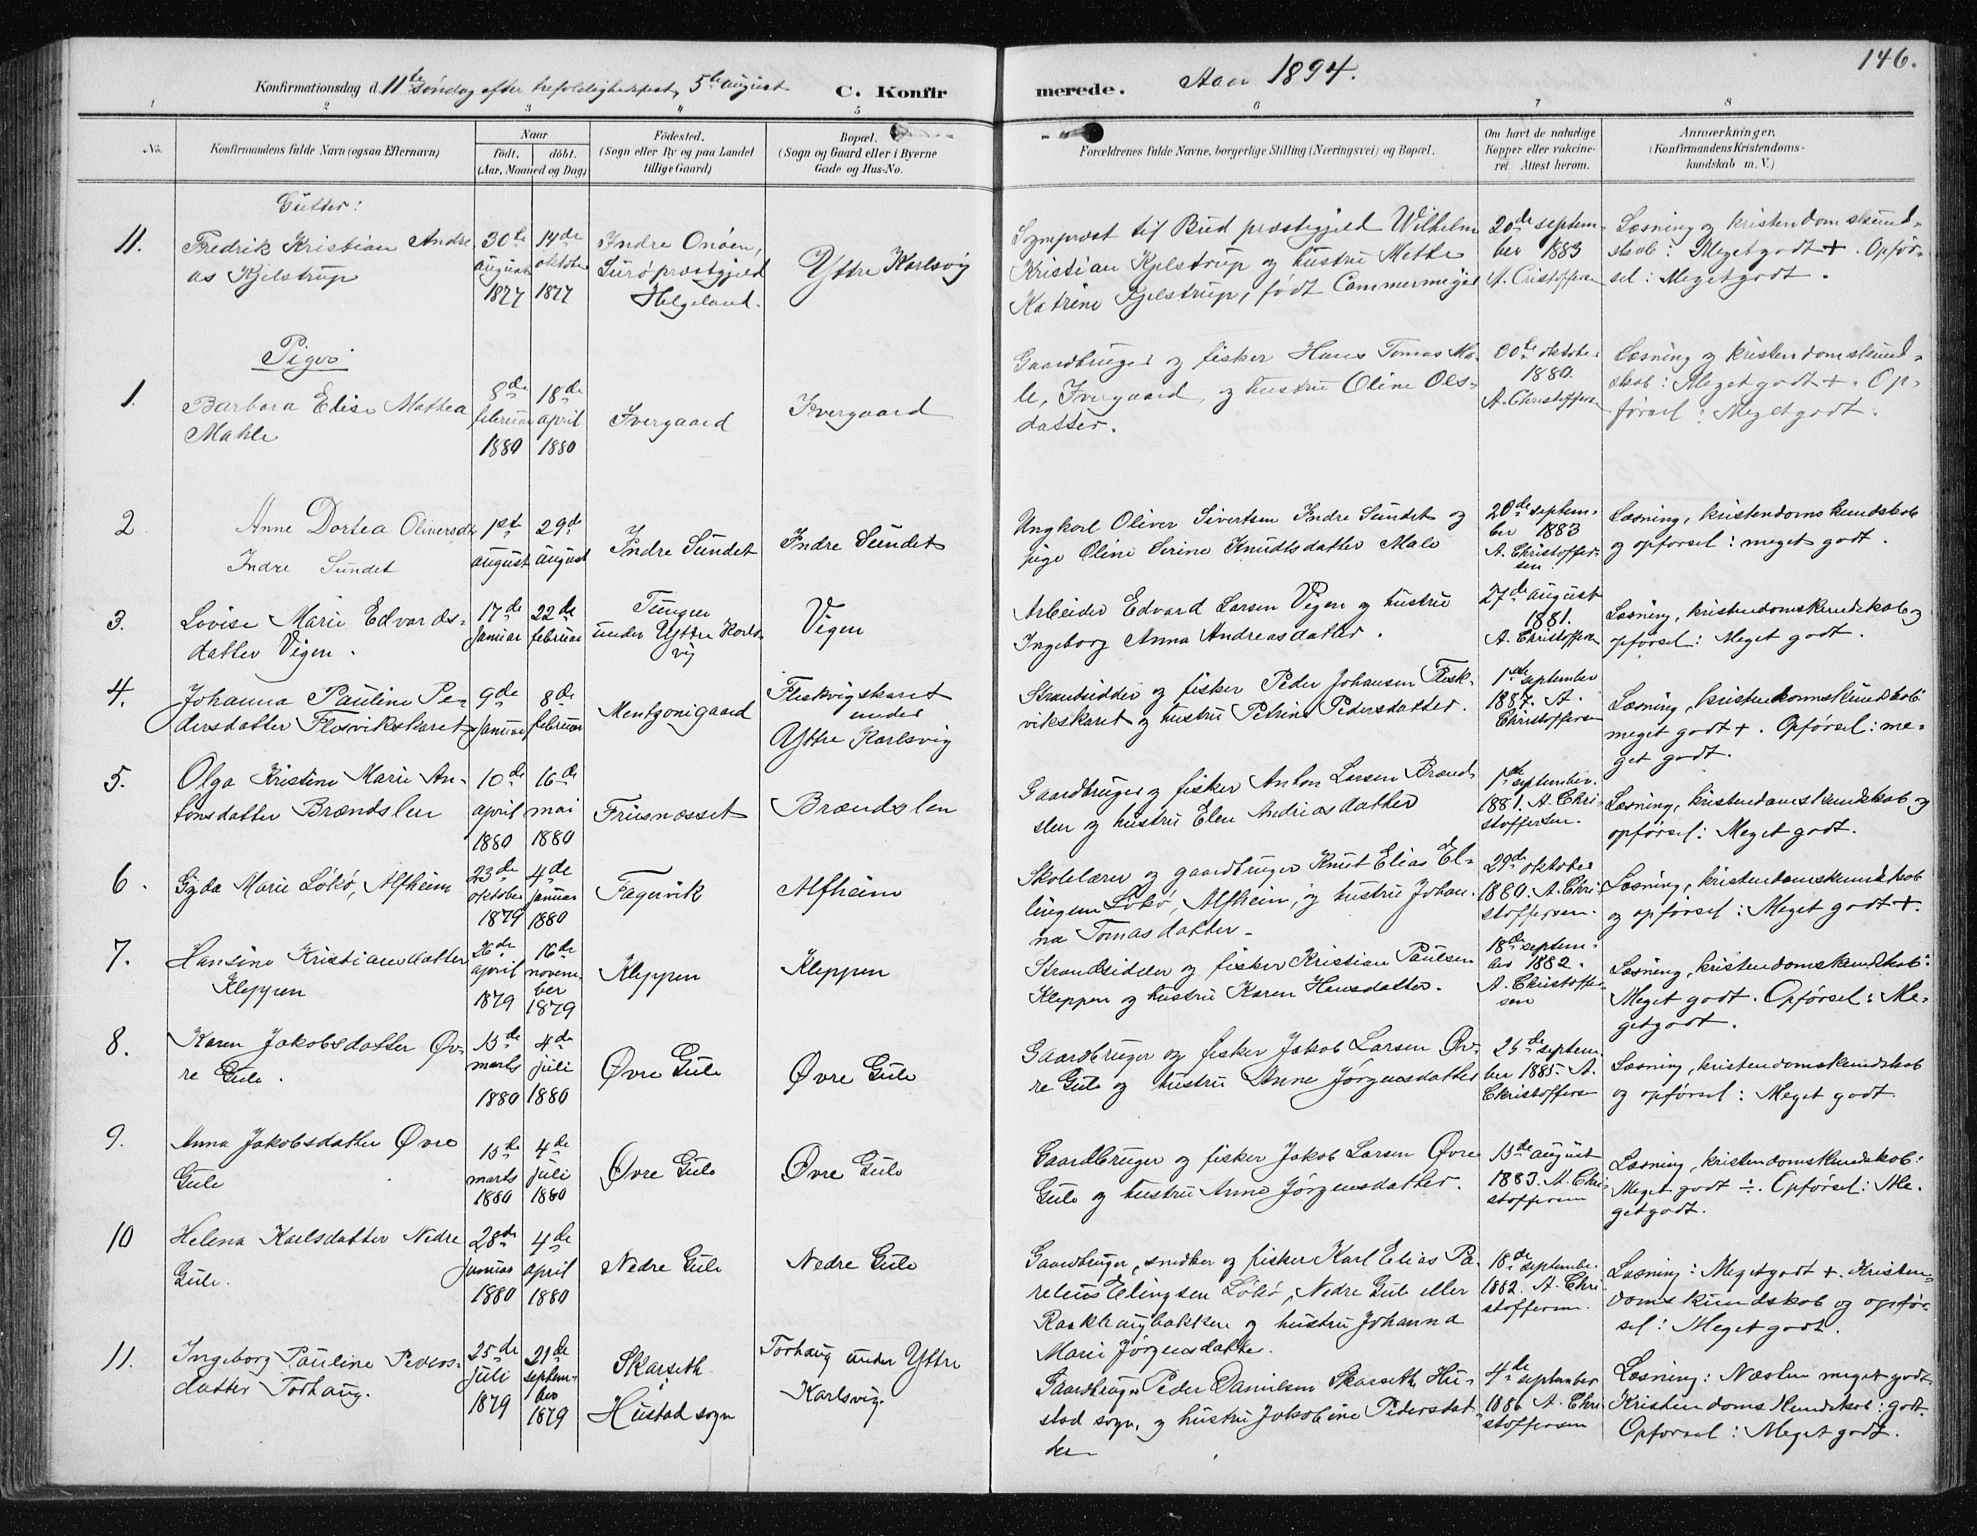 146.
Konfirmationsdag d. 11te søndag efter trefoldighedsfest, 5te august
C. Konfirmerede.
Aar 1894.
1 2 3 4 5 6 7 8
No.
Konfirmandens fulde Navn (ogsaa Efternavn)
Naar
født. døbt.
(Aar, Maaned og Dag)
Fødested.
(Sogn eller By og paa Landet
tillige Gaard)
Bopæl.
(Sogn og Gaard eller i Byerne
Gade og Hus-No.
Forældrenes fulde Navne, borgerlige Stilling (Næringsvei) og Bopæl.
Om havt de naturlige
Kopper eller vakcine-
rei Attest herom.
Anmærkninger.
(Konfirmandens Kristendoms-
kundskab m. V.)
Gutter:
11.
Fredrik Kristian Andre
as Kjelstrup
30te
august
1877
14de
oktober
1877
Indre Onøen,
Lurø præstegjeld
Helgeland.
Yttre Karlsvig
Sogneprest til Bud prestegjeld Wilhelm
Kristian Kjelstrup og hustru Mette
Katrine Kjelstrup, født Cammermeyer
20de septem-
ber 1883
A. Cristoffersen
Læsning og kristendomskund-
skab: Meget godt +. Opfør-
sel: Meget godt.
Piger:
1.
Barbara Elise Mathea
Mahle
8de
februar
1880
18de
april
1880
Ivergaard
Ivergaard
Gaardbruger og fisker Hans Tomas Ma-
le, Ivergaard og hustru Oline Ols-
datter.
oktober
1880.
A. Christoffersen
Læsning og kristendomskund-
skab: Meget godt +. Op-
førsel: Meget godt.
2
Anne Dortea Oliversdtr
Indre Sundet
1ste
august
29de
august
Indre Sundet
Indre Sundet
Ungkarl Oliver Sivertsen Indre Sundet og
pige Oline Serine Knudtsdatter Male
20de septem-
ber 1883
A. Christoffer-
sen
Læsning, kristendomskundskab
og opførsel: meget godt.
3.
Lovise Marie Edvards-
datter Vigen.
17de
januar
22de
februar
Tungen
under Yttre Karls-
vig
Vigen
Arbeider Edvard Larsen Vigen og hustru
Ingeborg Anna Andreasdatter.
27de august
1881.
A. Christoffersen
Læsning, kristendomskundskab og
opførsel: Meget godt.
4.
Johanna Pauline Pe-
dersdatter Flesvikskaret
9de
januar
8de
februar
Mentzonigaard
Fleskvigskaret
under
Yttre Karlsvig
Strandsidder og fisker Peder Johansen Flesk-
vikskaret og hustru Petrine Pedersdatter.
1ste september
1887. A.
Christoffersen
Læsning, kristendomskundskab
meget godt +. Opførsel: me-
get godt.
5.
Olga Kristine Marie An-
tonsdatter Brændslen
10de
april
1880
16de
mai
1880
Frusnæsset
Brændslen
Gaardbruger og fisker Anton Larsen Brænd-
slen og hustru Elen Andreasdatter
1ste september.
1881. A. Chri-
stoffersen.
Læsning, kristendomskundskab og
opførsel: Meget godt.
6.
Gyda Marie Løkø, Alfheim
23de
oktober
1879
4de
januar
1880
Fagervik
Alfheim
Skolelærer og gaardbruger Knut Elias El-
lingsen Løkø, Alfheim, og hustru Johan-
na Tomasdatter.
29de oktober
1880. A. Chri-
stoffersen.
Læsning, kristendomskundskab
og opførsel: Meget godt +.
7.
Hansine Kristiansdatter
Kleppen
26de
april
1879
16de
novem-
ber
1879
Kleppen
Kleppen
Strandsidder og fisker Kristian Paulsen
Kleppen og hustru Karen Hansdatter.
18de septem-
ber 1882.
A. Christoffer-
sen
Læsning, kristendomskundskab:
Meget godt. Opførsel: Me-
get godt.
8.
Karen Jakobsdatter Øv-
re Gule.
15de
marts
1880
4de
juli
1880
Øvre Gule
Øvre Gule
Gaardbruger og fisker Jakob Larsen Øv-
re Gule og hustru Anne Jørgensdatter
25de septem-
ber 1885. A.
Christoffersen
Læsning, kristendomskundskab
og opførsel: Meget godt.
9.
Anna Jakobsdatter Øvre
Gule
15de
marts
1880
4de
juli
1880
Øvre Gule
Øvre Gule
Gaardbruger og fisker Jakob Larsen Øvre
Gule og hustru Anne Jørgensdatter.
15de august
1883. A. Chri-
stoffersen
Læsning, kristendomskundskab:
Meget godt ÷. Opførsel: Me-
get godt.
10
Helena Karlsdatter Nedre
Gule.
28de
januar
1880
4de
april
1880
Nedre Gule
Nedre Gule
Gaardbruger, snedker og fisker Karl Elias Pa-
relius Elingsen Løkø, Nedre Gule eller
Raakhaugbakken og hustru Johanna
Marie Jørgensdatter.
18de september
1882. A. Chri-
stoffersen.
Læsning: Meget godt +. Kristen-
domskundskab og opfør-
sel: Meget godt.
11.
Ingeborg Pauline Peders-
datter Torhaug.
25de
juli
1879
21de
septem-
ber
1879
Skarseth
Hustad sogn
Torhaug under Yttre
Karlsvig.
Gaardbruger Peder Danielsen Skarseth, Hu-
stad sogn, og hustru Jakobine Pedersdat-
ter
4de september
1886 A. Chri-
stoffersen
Læsning: Næsten meget godt.
Kristendomskundskab: godt.
Opførsel: Meget godt.